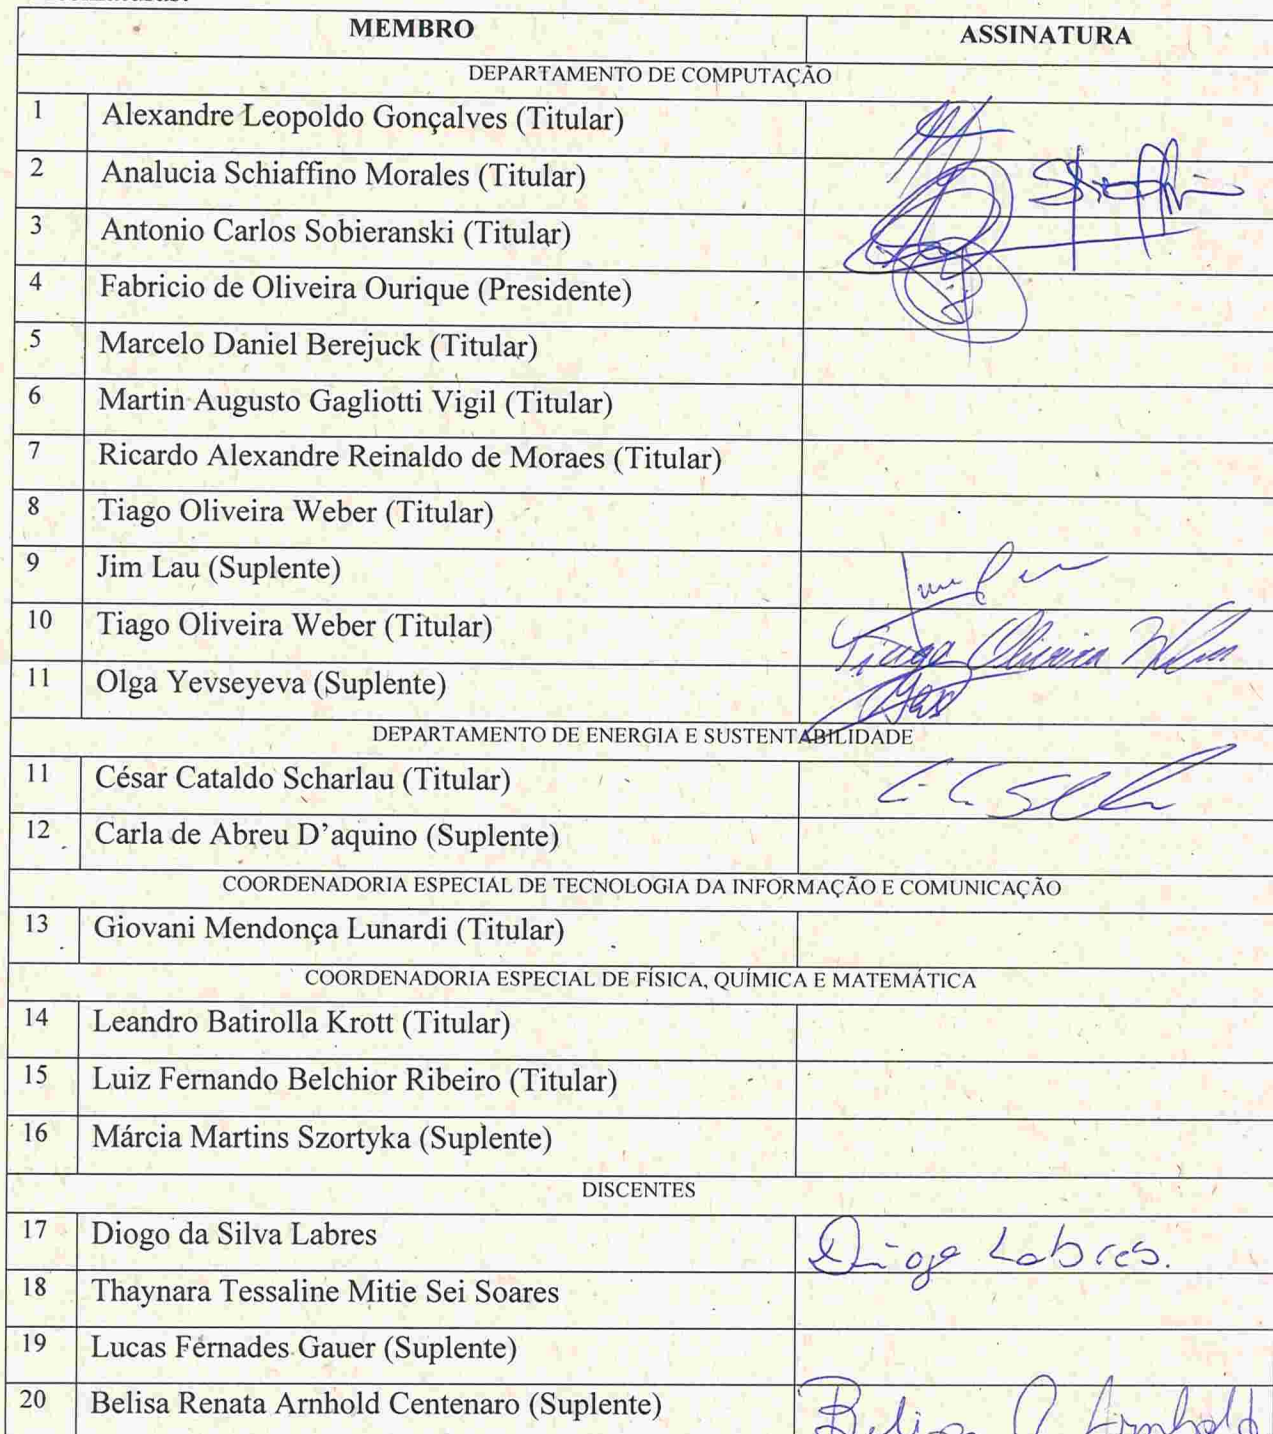 MEMBRO ASSINATURA
DEPARTAMENTO DE COMPUTAÇÃO
1 Alexandre Leopoldo Gonçalves (Titular)
2 Analucia Schiaffino Morales (Titular)
3 Antonio Carlos Sobieranski (Titular)
4 Fabricio de Oliveira Ourique (Presidente)
5 Marcelo Daniel Berejuck (Titular)
6 Martin Augusto Gagliotti Vigil (Titular)
7 Ricardo Alexandre Reinaldo de Moraes (Titular)
8 Tiago Oliveira Weber (Titular)
9 Jim Lau (Suplente)
10 Tiago Oliveira Weber (Titular) Tiago Oliveira Weber
11 Olga Yevseyeva (Suplente)
DEPARTAMENTO DE ENERGIA E SUSTENTABILIDADE
11 César Cataldo Scharlau (Titular)
12 Carla de Abreu D'aquino (Suplente)
COORDENADORIA ESPECIAL DE TECNOLOGIA DA INFORMAÇÃO E COMUNICAÇÃO
13 Giovani Mendonça Lunardi (Titular)
COORDENADORIA ESPECIAL DE FÍSICA, QUÍMICA E MATEMÁTICA
14 Leandro Batirolla Krott (Titular)
15 Luiz Fernando Belchior Ribeiro (Titular)
16 Márcia Martins Szortyka (Suplente)
DISCENTES
17 Diogo da Silva Labres Diogo Labres.
18 Thaynara Tessaline Mitie Sei Soares
19 Lucas Fernades Gauer (Suplente)
20 Belisa Renata Arnhold Centenaro (Suplente) Belisa R. Arnhold